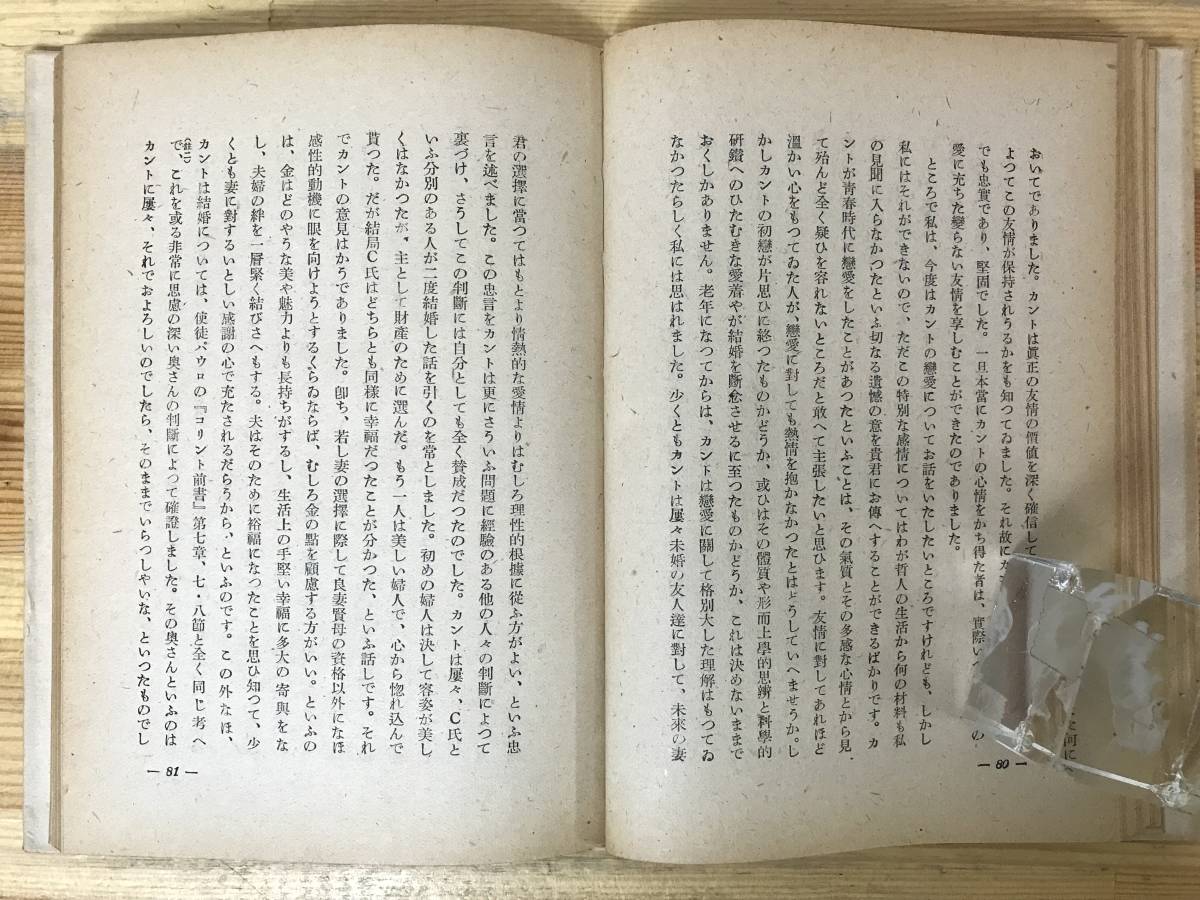 おいてでありました。カントは眞正の友情の價値を深く確信して
よつてこの友情が保持されうるかをも知つてゐました。それ故にカン
でも忠實であり、堅固でした。一旦本當にカントの心情をかち得た者は、實際い の
愛に充ちた變らない友情を享しむことができたのでありました。
ところで私は、今度はカントの戀愛についてお話をいたしたいところですけれども、しかし
私にはそれができないので、ただこの特別な感情についてはわが哲人の生活から何の材料も私
の見聞に入らなかつたといふ切なる遺憾の意を貴君にお傳へすることができるばかりです。カ
ントが靑春時代に戀愛をしたことがあつたといふことは、その氣質とその多感な心情とから見
て殆んど全く疑ひを容れないところだと敢へて主張したいと思ひます。友情に對してあれほど
溫かい心をもつてゐた人が、戀愛に對しても熱情を抱かなかつたとはどうしていへませうか。し
かしカントの初戀が片思ひに終つたものかどうか、或ひはその體質や形而上學的思辨と科學的
硏鑽へのひたむきな愛着やが結婚を斷念させるに至つたものかどうか、これは決めないままで
おくしかありません。老年になつてからは、カントは戀愛に關して格別大した理解はもつてゐ
なかつたらしく私には思はれました。少くともカントは屢々未婚の友人達に對して、未來の妻
— 80 —
君の選擇に當つてはもとより情熱的な愛情よりはむしろ理性的根據に從ふ方がよい、といふ忠
言を述べました。この忠言をカントは更にさういふ問題に經驗のある他の人々の判斷によつて
裏づけ、さうしてこの判斷には自分としても全く贊成だつたのでした。カントは屢々、C氏と
いふ分別のある人が二度結婚した話を引くのを常としました。初めの婦人は決して容姿が美し
くはなかつたが、主として財產のために選んだ。もう一人は美しい婦人で、心から惚れ込んで
貰つた。だが結局C氏はどちらとも同樣に幸福だつたことが分かつた、といふ話しです。それ
でカントの意見はかうでありました。卽ち、若し妻の選擇に際して良妻賢母の資格以外になほ
感性的動機に眼を向けようとするくらゐならば、むしろ金の點を顧慮する方がいい。といふの
は、金はどのやうな美や魅力よりも長持ちがするし、生活上の手堅い幸福に多大の寄與をな
し、夫婦の絆を一層緊く結びさへもする。夫はそのために裕福になつたことを思ひ知つて、少
くとも妻に對するいとしい感謝の心で充たされるだらうから、といふのです。この外なほ、
カントは結婚については、使徒パウロの『コリント前書』第七章、七・八節と全く同じ考へ
(註二)
で、これを或る非常に思慮の深い奧さんの判斷によつて確證しました。その奧さんといふのは
カントに屢々、それでおよろしいのでしたら、そのままでいらつしやいな、といつたものでし
— 81 —